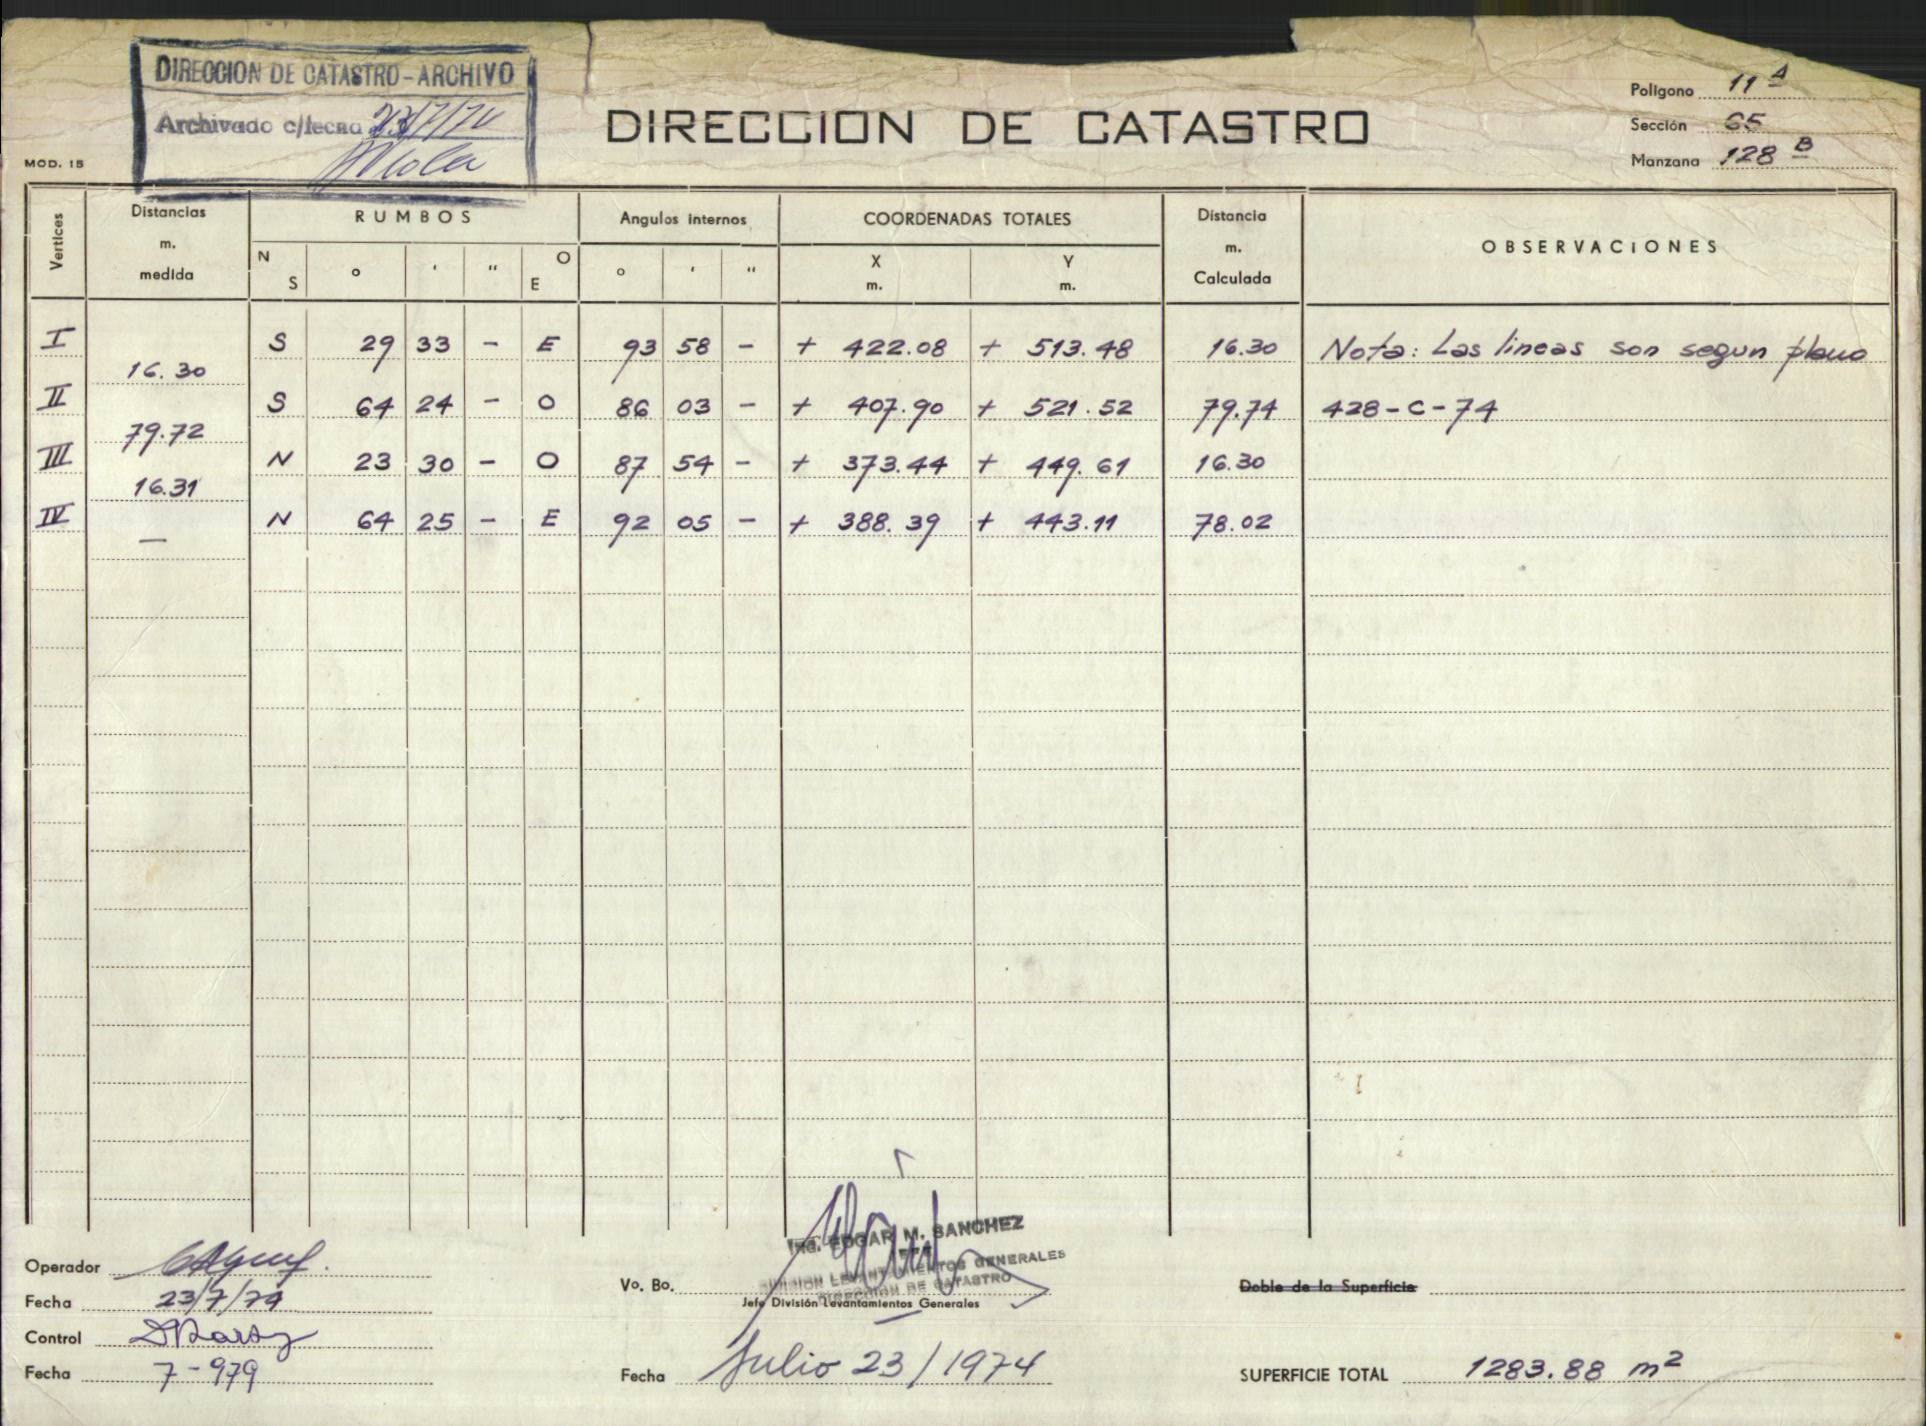 DIRECCION DE CATASTRO - ARCHIVO
Archivado c/fecha 23/7/74
MOD. 15
DIRECCION DE CATASTRO
Poligono 11 A
Sección 65
Manzana 128 B
Vertices Distancias m. medida RUMBOS Angulos internos COORDENADAS TOTALES Distancia m. Calculada OBSERVACIONES
N S ° ' " O E ° ' " X m. Y m.
I S 29 33 - E 93 58 - + 422.08 + 513.48 16.30 Nota: Las lineas son segun plano
16.30
II S 64 24 - O 86 03 - + 407.90 + 521.52 79.74 428-C-74
79.72
III N 23 30 - O 87 54 - + 373.44 + 449.61 16.30
16.31
IV N 64 25 - E 92 05 - + 388.39 + 443.11 78.02
—
Operador
Fecha 23/7/74
Control
Fecha 7-979
Ing. EDGAR M. SANCHEZ
JEFE
DIVISION LEVANTAMIENTOS GENERALES
DIRECCION DE CATASTRO
Vo. Bo.
Jefe División Levantamientos Generales
Fecha Julio 23/1974
Doble de la Superficie
SUPERFICIE TOTAL 1283.88 m²